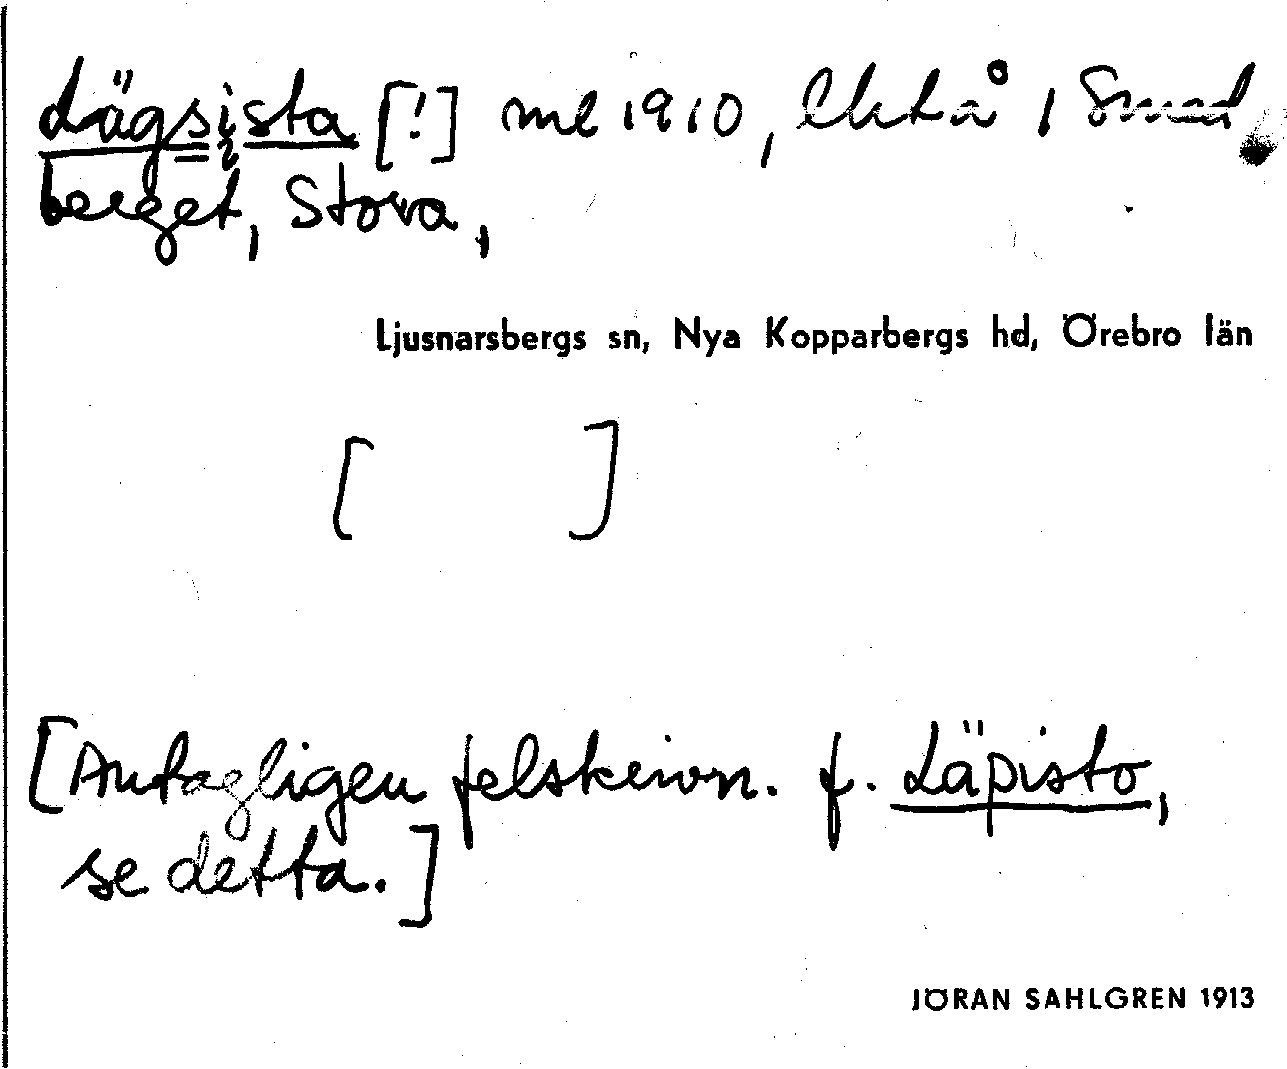 Lägsista [!] ml 1910, Ekt å 1 Smed
berget, Stora,
Ljusnarsbergs sn, Nya Kopparbergs hd, Örebro län
[ ]
[Antagligen felskrivn. f. Läpisto,
se detta.]
JÖRAN SAHLGREN 1913